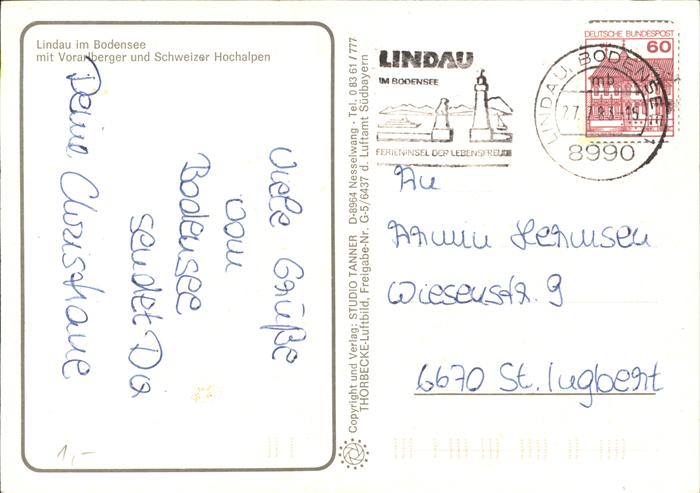 Lindau im Bodensee
mit Vorarlberger und Schweizer Hochalpen
Viele Grüße
vom
Bodensee
sendet Dir
Deine Christiane
1,-
Copyright und Verlag: STUDIO TANNER D-8964 Nesselwang - Tel. 0 83 61 / 777
THORBECKE-Luftbild, Freigabe-Nr. G-5/6437 d. Luftamt Südbayern
LINDAU
IM BODENSEE
FERIENINSEL DER LEBENSFREUDE
LINDAU, BODENSEE
mb
8990
DEUTSCHE BUNDESPOST
60
An
Armin Hermsen
Wiesenstr. 9
6670 St. Ingbert